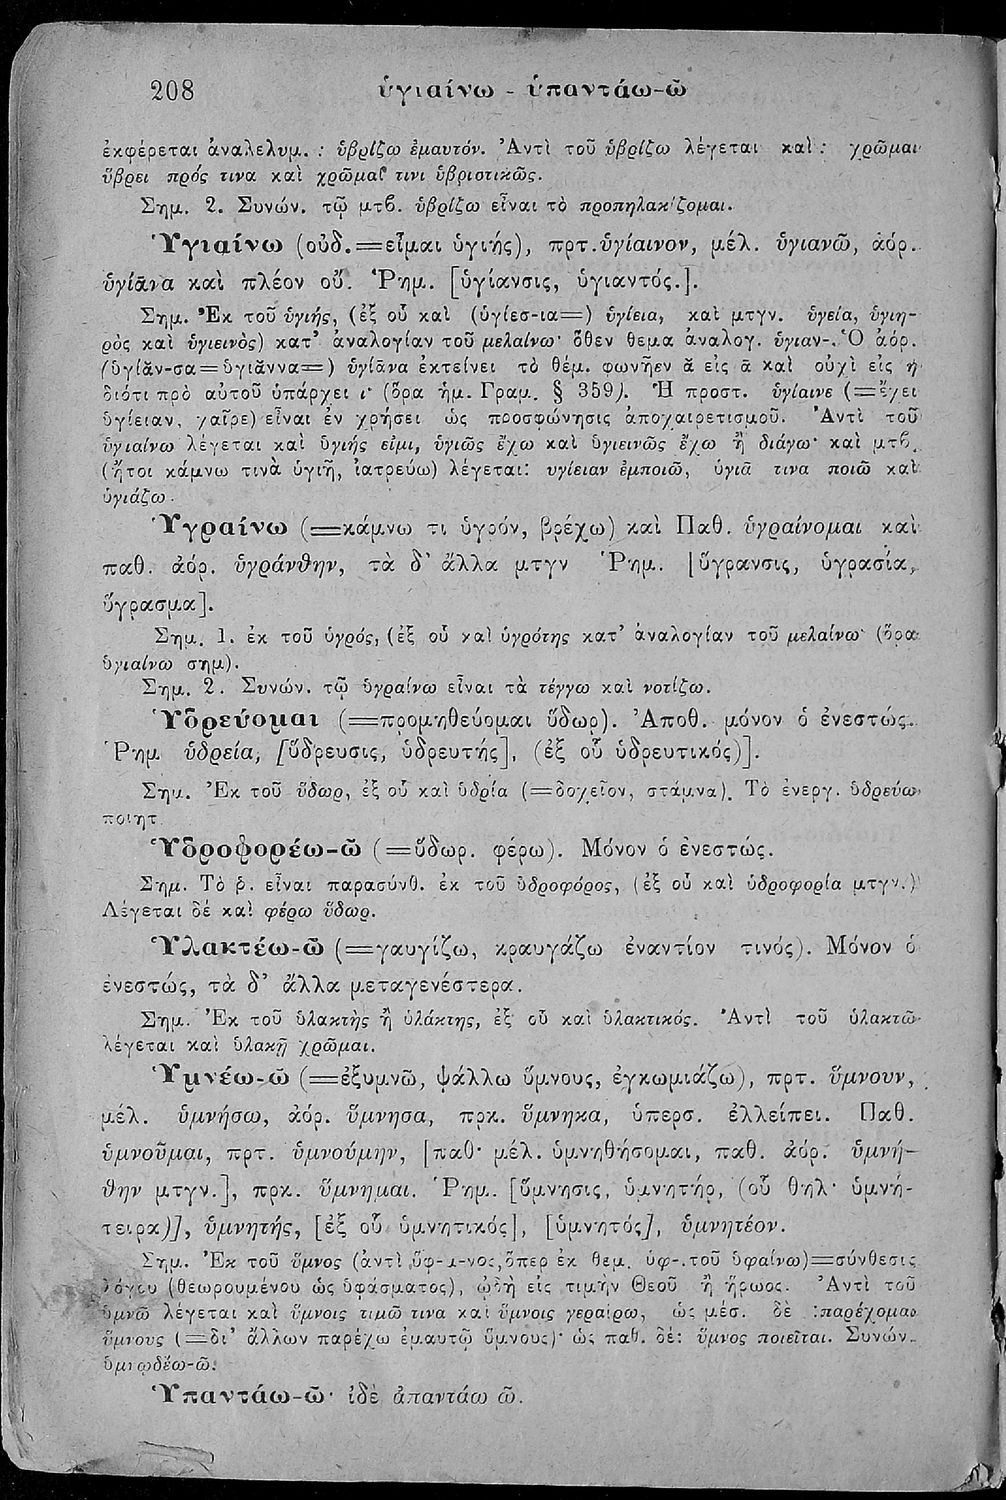 208 ὑγιαίνω - ὑπαντάω-ῶ
ἐκφέρεται ἀναλελυμ. : ὑβρίζω ἐμαυτόν. Ἀντὶ τοῦ ὑβρίζω λέγεται καὶ : χρῶμαι
ὕβρει πρός τινα καὶ χρῶμαί τινι ὑβριστικῶς.
Σημ. 2. Συνών. τῷ μτβ. ὑβρίζω εἶναι τὸ προπηλακίζομαι.
Ὑγιαίνω (οὐδ.=εἶμαι ὑγιής), πρτ. ὑγίαινον, μέλ. ὑγιανῶ, ἀόρ.
ὑγίᾱνα καὶ πλέον οὔ. Ῥημ. [ὑγίανσις, ὑγιαντός.].
Σημ. Ἐκ τοῦ ὑγιής, (ἐξ οὗ καὶ (ὑγίεσ-ια=) ὑγίεια, καὶ μτγν. ὑγεία, ὑγιη-
ρὸς καὶ ὑγιεινὸς) κατ’ ἀναλογίαν τοῦ μελαίνω· ὅθεν θεμα ἀναλογ. ὑγιαν-. Ὁ ἀόρ.
(ὑγίᾰν-σα=ὑγιᾰννα=) ὑγίᾱνα ἐκτείνει τὸ θέμ. φωνῆεν ᾰ εἰς ᾱ καὶ οὐχὶ εἰς η·
διότι πρὸ αὐτοῦ ὑπάρχει ι· (ὅρα ἡμ. Γραμ. § 359). Ἡ προστ. ὑγίαινε (=ἔχει
ὑγίειαν, χαῖρε) εἶναι ἐν χρήσει ὡς προσφώνησις ἀποχαιρετισμοῦ. Ἀντὶ τοῦ
ὑγιαίνω λέγεται καὶ ὑγιής εἰμι, ὑγιῶς ἔχω καὶ ὑγιεινῶς ἔχω ἢ διάγω· καὶ μτβ.
(ἤτοι κάμνω τινὰ ὑγιῆ, ἰατρεύω) λέγεται: υγίειαν ἐμποιῶ, ὑγιᾶ τινα ποιῶ καὶ
ὑγιάζω.
Ὑγραίνω (=κάμνω τι ὑγρόν, βρέχω) καὶ Παθ. ὑγραίνομαι καὶ
παθ. ἀόρ. ὑγράνθην, τὰ δ’ ἄλλα μτγν Ῥημ. [ὕγρανσις, ὑγρασία,
ὕγρασμα].
Σημ. 1. ἐκ τοῦ ὑγρός, (ἐξ οὗ καὶ ὑγρότης κατ’ ἀναλογίαν τοῦ μελαίνω· (ὅρα
ὑγιαίνω σημ).
Σημ. 2. Συνών. τῷ ὑγραίνω εἶναι τὰ τέγγω καὶ νοτίζω.
Ὑδρεύομαι (=προμηθεύομαι ὕδωρ). Ἀποθ. μόνον ὁ ἐνεστώς.
Ῥημ ὑδρεία, [ὕδρευσις, ὑδρευτής], (ἐξ οὗ ὑδρευτικός)].
Σημ. Ἐκ τοῦ ὕδωρ, ἐξ οὗ καὶ ὑδρία (=δοχεῖον, στάμνα). Τὸ ἐνεργ. ὑδρεύω
ποιητ.
Ὑδροφορέω-ῶ (=ὕδωρ. φέρω). Μόνον ὁ ἐνεστώς.
Σημ. Τὸ ῥ. εἶναι παρασύνθ. ἐκ τοῦ ὑδροφόρος, (ἐξ οὗ καὶ ὑδροφορία μτγν.)
Λέγεται δέ καὶ φέρω ὕδωρ.
Ὑλακτέω-ῶ (=γαυγίζω, κραυγάζω ἐναντίον τινός). Μόνον ὁ
ἐνεστώς, τὰ δ’ ἄλλα μεταγενέστερα.
Σημ. Ἐκ τοῦ ὑλακτὴς ἢ ὑλάκτης, ἐξ οὗ καὶ ὑλακτικός. Ἀντὶ τοῦ ὑλακτῶ
λέγεται καὶ ὑλακῇ χρῶμαι.
Ὑμνέω-ῶ (=ἐξυμνῶ, ψάλλω ὕμνους, ἐγκωμιάζω), πρτ. ὕμνουν,
μέλ. ὑμνήσω, ἀόρ. ὕμνησα, πρκ. ὕμνηκα, ὑπερσ. ἐλλείπει. Παθ.
ὑμνοῦμαι, πρτ. ὑμνούμην, [παθ· μέλ. ὑμνηθήσομαι, παθ. ἀόρ. ὑμνή-
θην μτγν.], πρκ. ὕμνημαι. Ῥημ. [ὕμνησις, ὑμνητήρ, (οὗ θηλ· ὑμνή-
τειρα)], ὑμνητής, [ἐξ οὗ ὑμνητικός], [ὑμνητός], ὑμνητέον.
Σημ. Ἐκ τοῦ ὕμνος (ἀντὶ ὕφ-μ-νος, ὅπερ ἐκ θεμ. ὑφ-. τοῦ ὑφαίνω)=σύνθεσις
λόγου (θεωρουμένου ὡς ὑφάσματος), ᾠδὴ εἰς τιμὴν Θεοῦ ἢ ἥρωος. Ἀντὶ τοῦ
ὑμνῶ λέγεται καὶ ὕμνοις τιμῶ τινα καὶ ὕμνοις γεραίρω, ὡς μέσ. δὲ :παρέχομαι
ὕμνους (=δι’ ἄλλων παρέχω ἐμαυτῷ ὕμνους)· ὡς παθ. δέ: ὕμνος ποιεῖται. Συνών.
ὑμνῳδέω-ῶ.
Ὑπαντάω-ῶ· ἰδὲ ἀπαντάω ῶ.